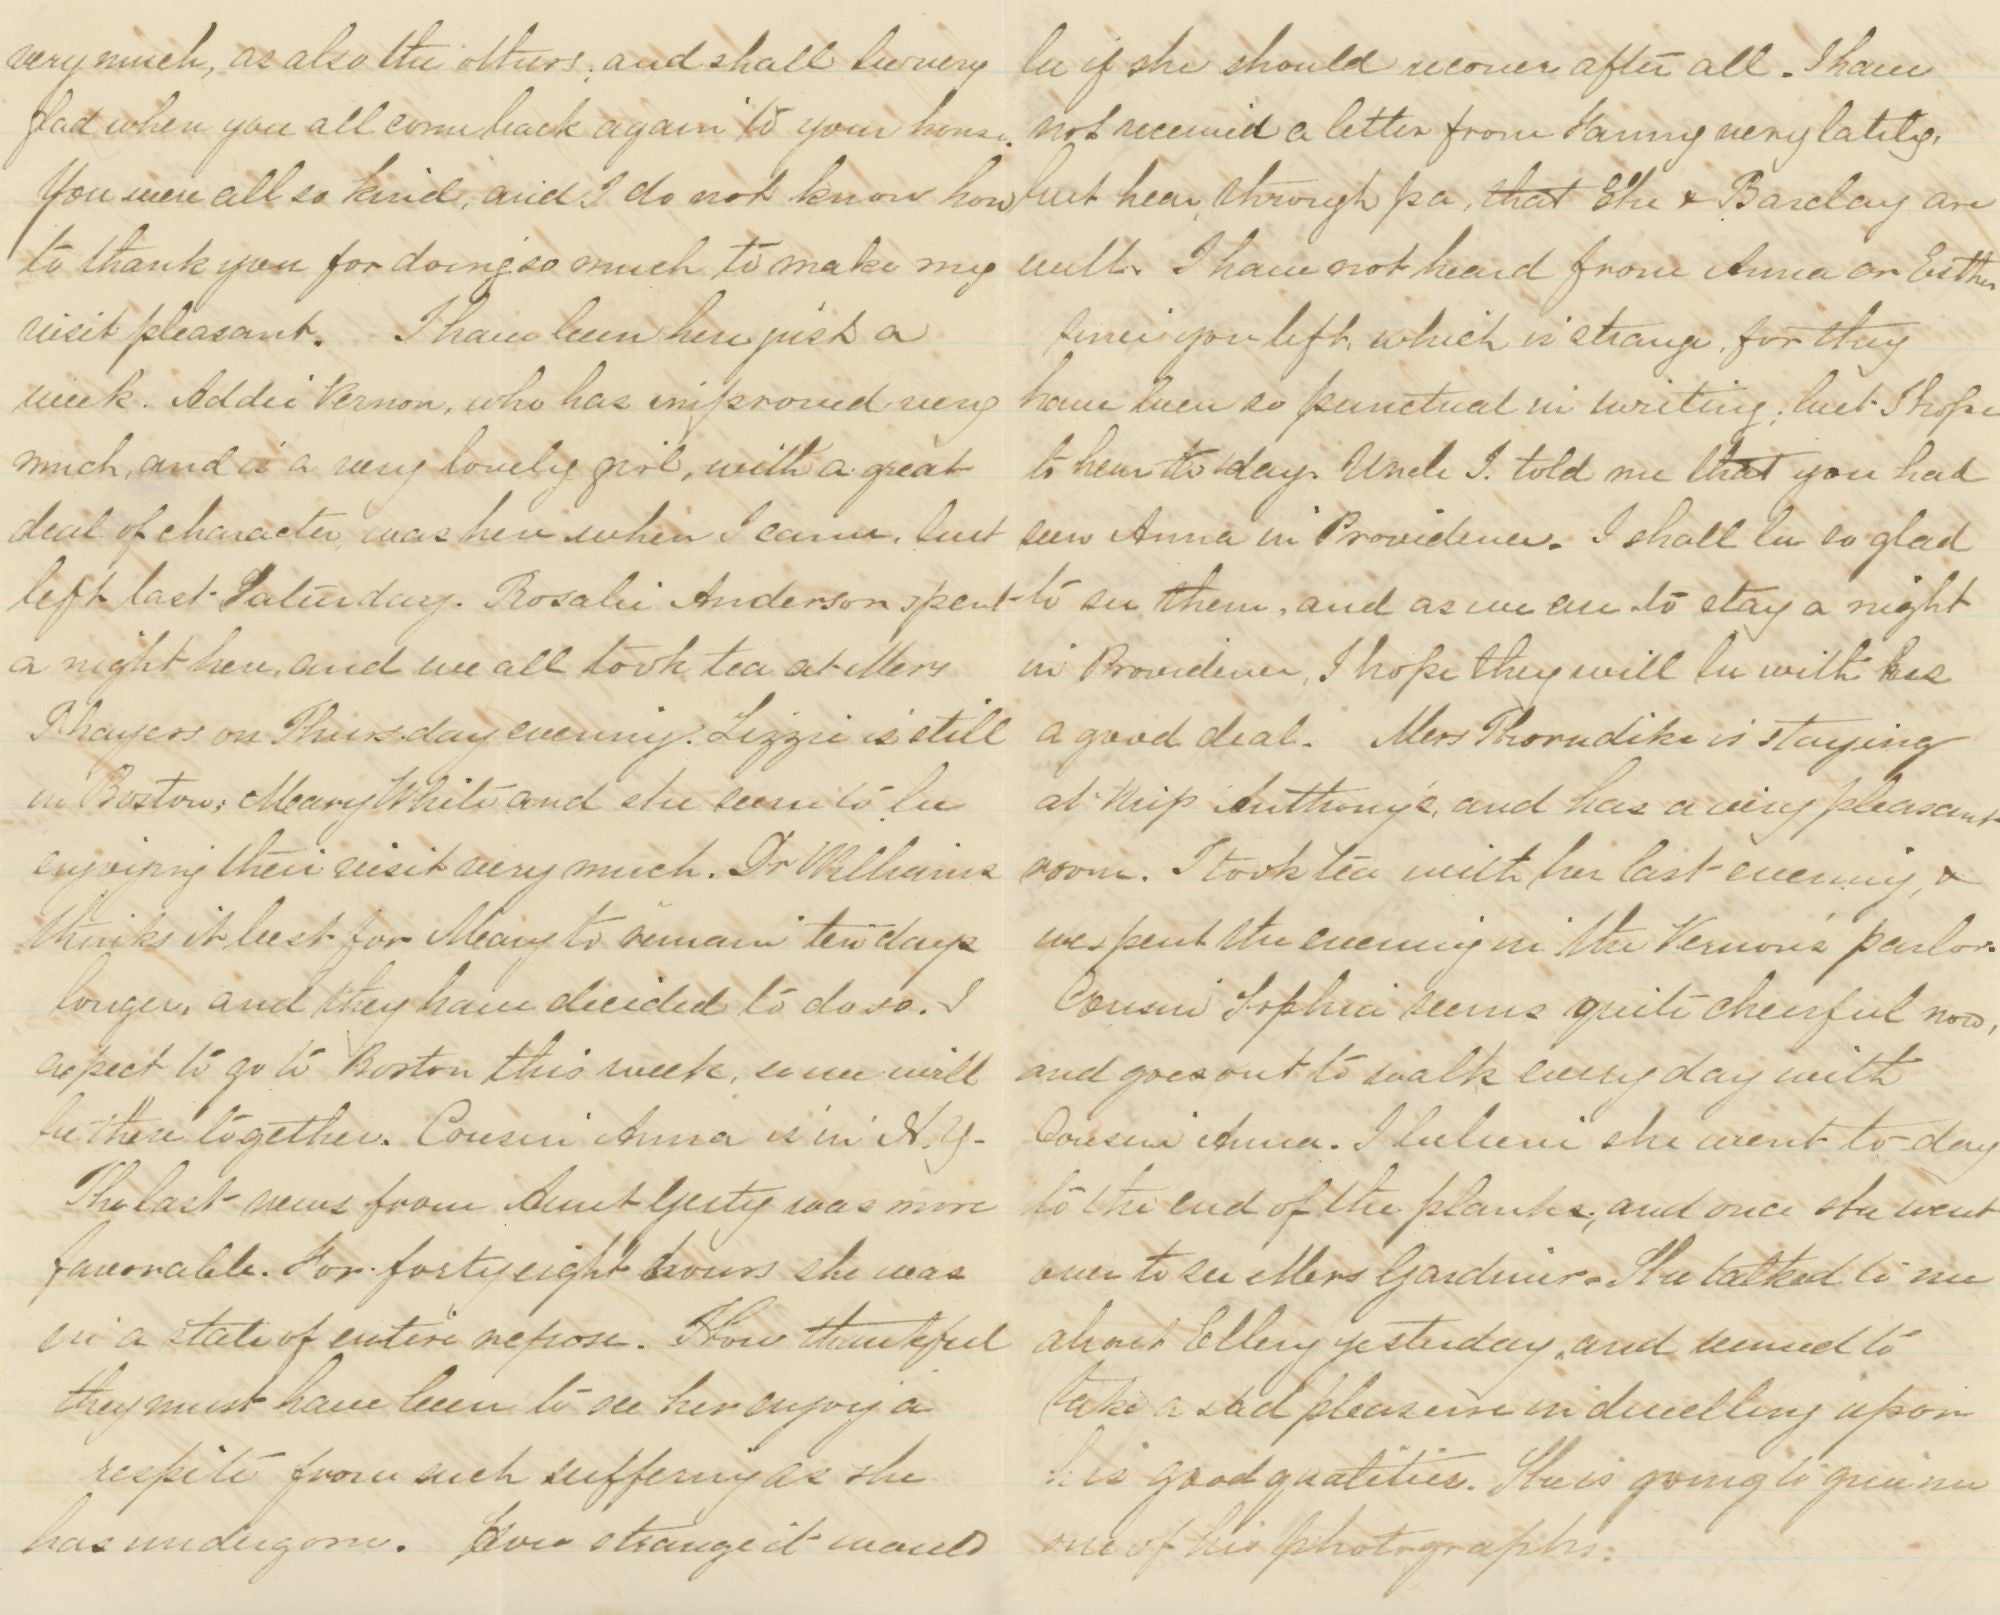 very much, as also the others; and shall be very
glad when you all come back again to your house.
You were all so kind, and I do not know how
to thank you for doing so much to make my
visit pleasant. I have been here just a
week. Addie Vernon, who has improved very
much, and is a very lovely girl, with a great
deal of character, was here when I came, but
left last Saturday. Rosalie Anderson spent
a night here, and we all took tea at Mrs
Thayers on Thursday evening. Lizzie is still
in Boston; Mary White and she seem to be
enjoying their visit very much. Dr Williams
thinks it best for Mary to remain ten days
longer, and they have decided to do so. I
expect to go to Boston this week, so we will
be there together. Cousin Anna is in N.Y.
The last news from Aunt Gerty was more
favorable. For forty eight hours she was
in a state of entire repose. How thankful
they must have been to see her enjoy a
respite from such suffering as she
has undergone. How strange it would
be if she should recover after all. I have
not received a letter from Fanny very lately,
but hear, through pa, that She & Barclay are
well. I have not heard from Anna or Esther
since you left, which is strange, for they
have been so punctual in writing; but I hope
to hear to day. Uncle I. told me that you had
seen Anna in Providence. I shall be so glad
to see them, and as we are to stay a night
in Providence, I hope they will be with us
a good deal. Mrs Thorndike is staying
at Anthony's, and has a very pleasant
room. I took tea with her last evening, &
we spent the evening in the Vernon's parlor.
Cousin Sophia seems quite cheerful now,
and goes out to walk every day with
Cousin Anna. I believe she went to-day
to the end of the planks, and once she went
over to see Mrs Gardiner. She talked to me
about Ellery yesterday, and seemed to
take a sad pleasure in dwelling upon
his good qualities. She is going to give me
one of his photographs.